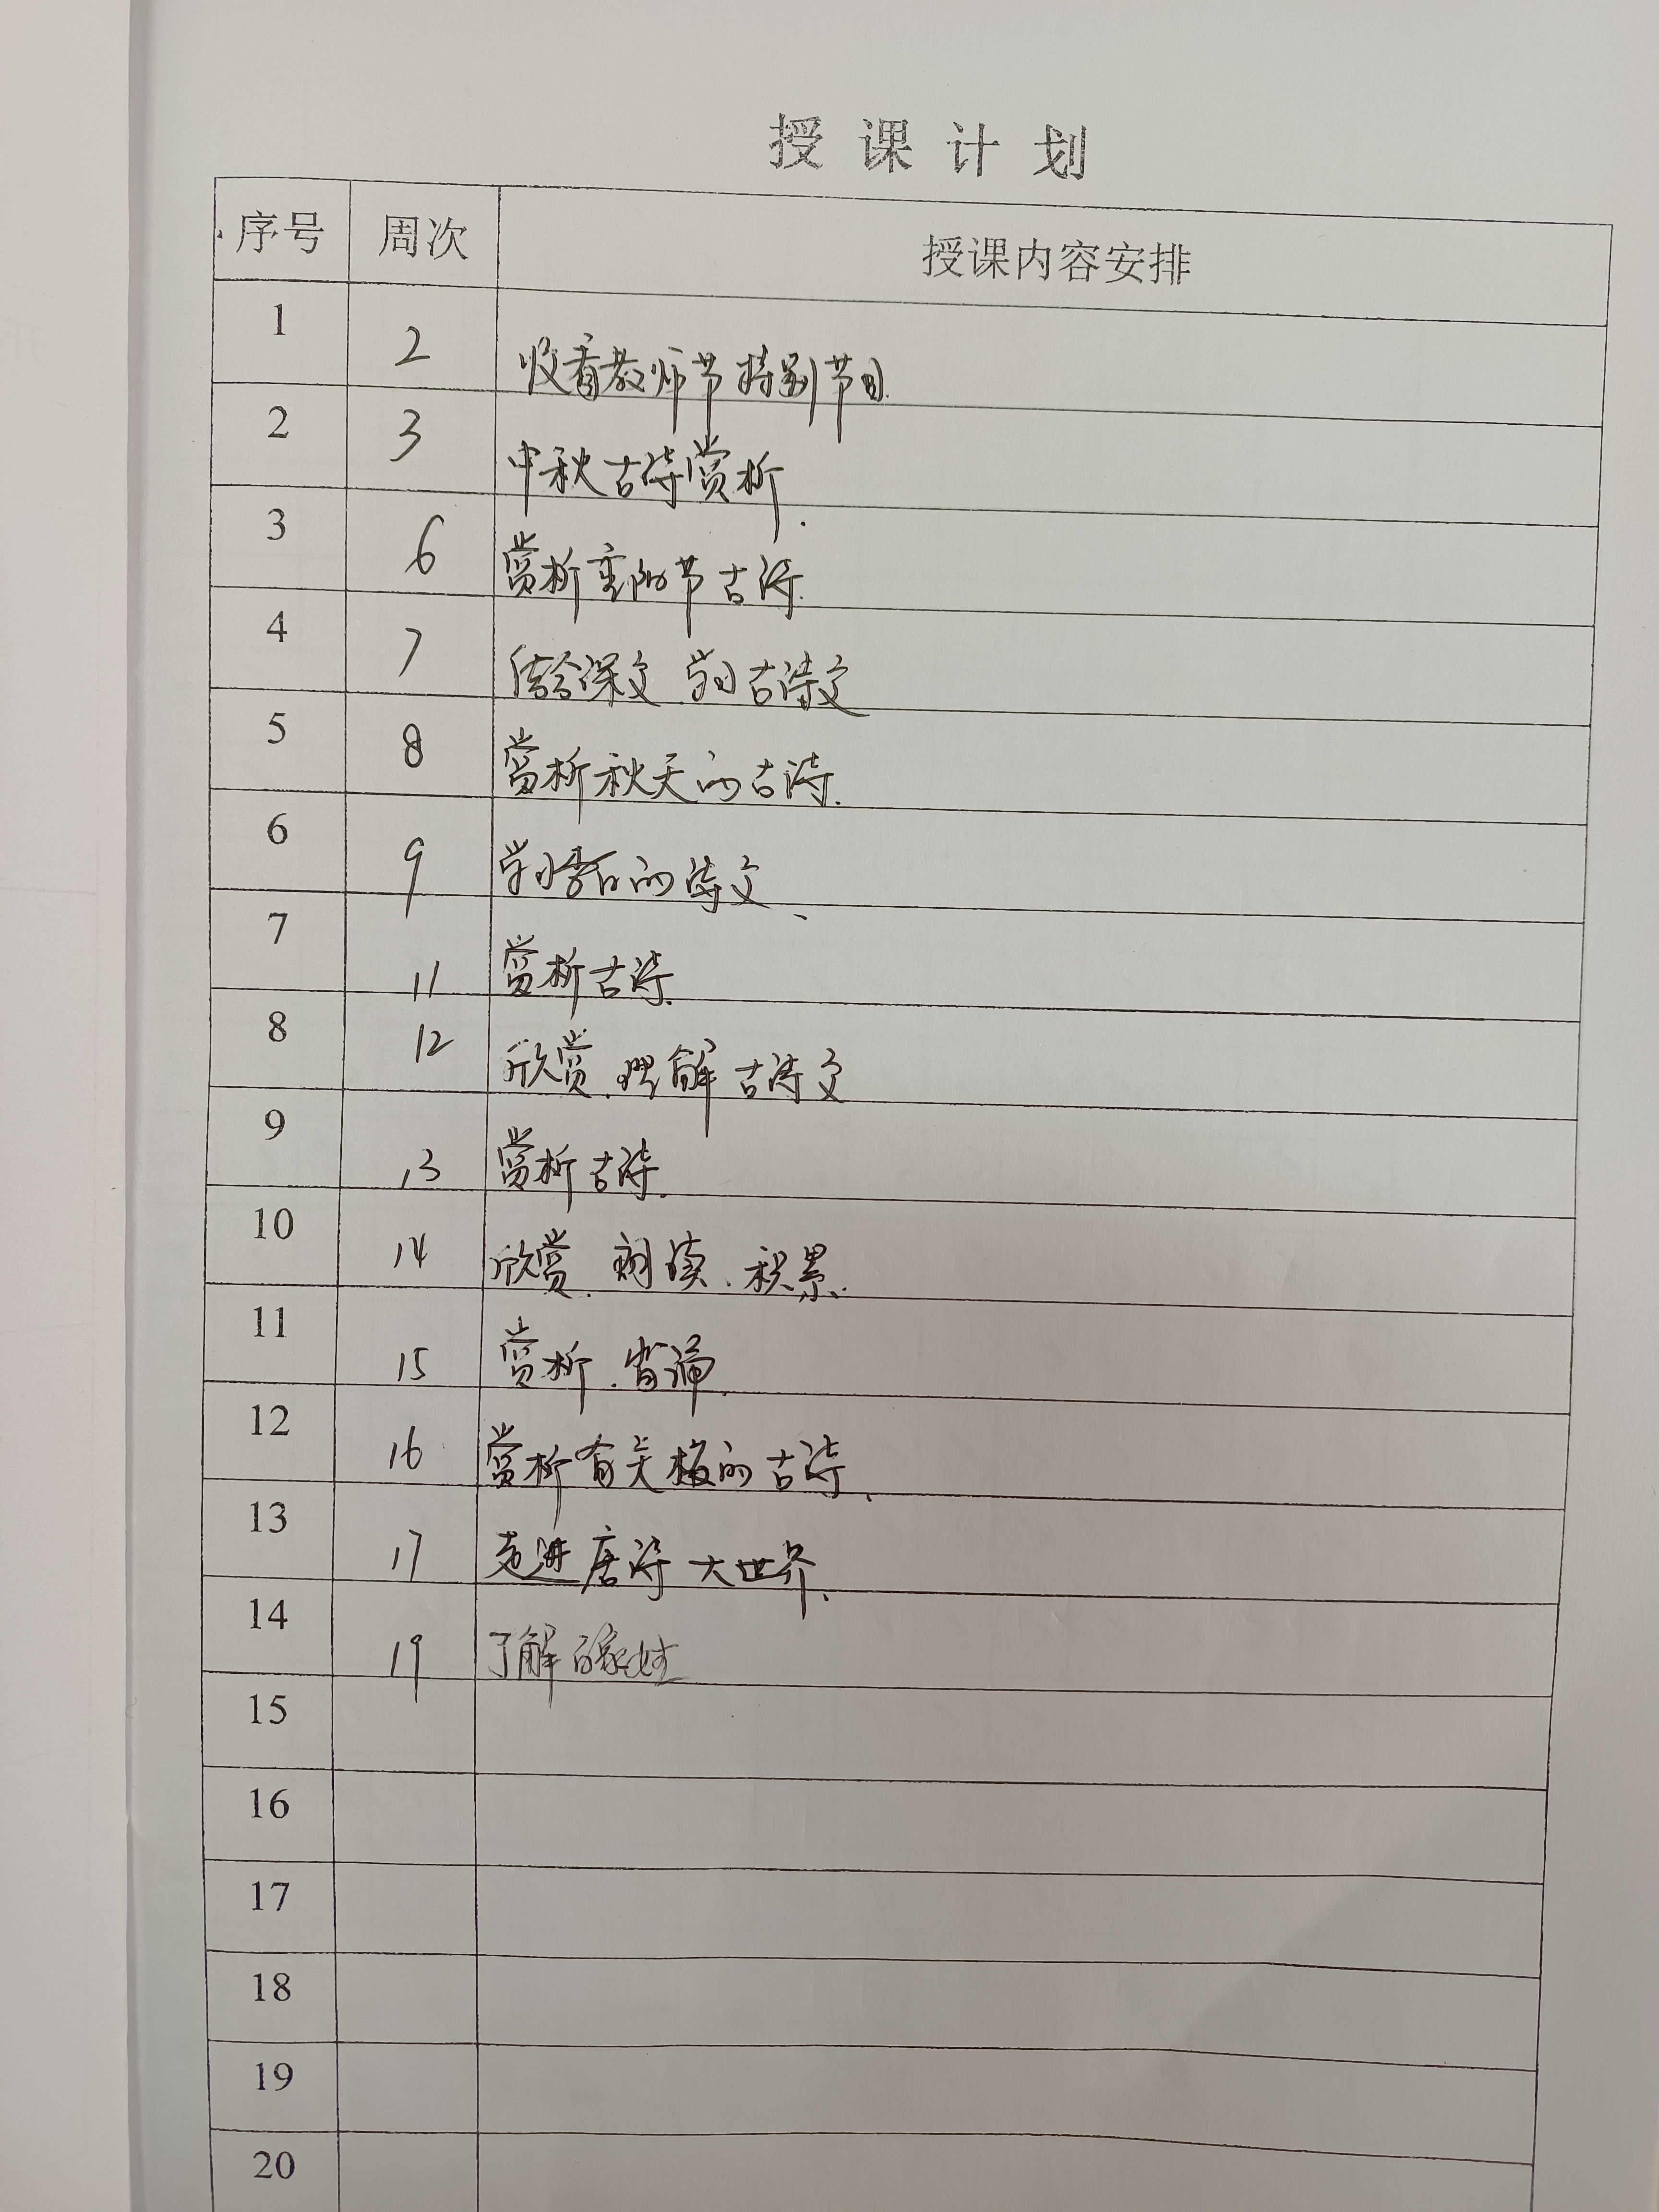 授课计划
序号 周次 授课内容安排
1 2 收看教师节特别节目.
2 3 中秋古诗赏析.
3 6 赏析重阳节古诗.
4 7 结合课文.学习古诗文
5 8 赏析秋天的古诗.
6 9 学习李白的诗文、
7 11 赏析古诗.
8 12 欣赏.理解古诗文
9 13 赏析古诗.
10 14 欣赏.朗读.积累.
11 15 赏析.背诵.
12 16 赏析有关梅的古诗、
13 17 走进唐诗大世界、
14 19 了解百家姓
15
16
17
18
19
20